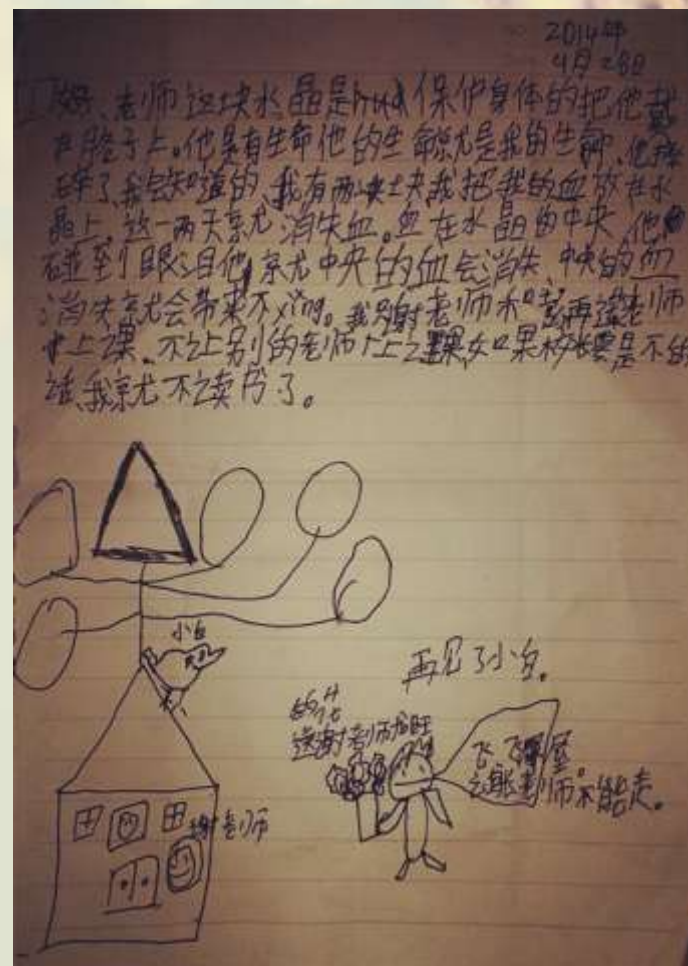 2014年
4月28日
好、老师这块水晶是hud保护身体的把他戴
在脖子上。他是有生命他的生命就是我的生命、他摔
碎了我会知道的、我有两块土夬我把我的血放在水
晶上、这一两天就消失血。血在水晶的中央、他
碰到眼泪他就中央的血会消失、中央的血
消失就会带来不xing。我只谢老师
上课、不上别的老师上课如果校长要是不的
我就不读书了。
小白
再见了小白。
的花
送谢老师
谢老师
飞飞屋
老师不能走。